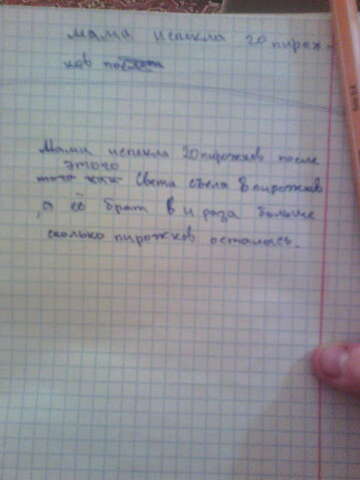 мама испекла 20 пирож-
ков после
Мама испекла 20 пирожков после
этого
того как Света съела 8 пирожков
, а её брат в 4 раза больше
сколько пирожков осталось.